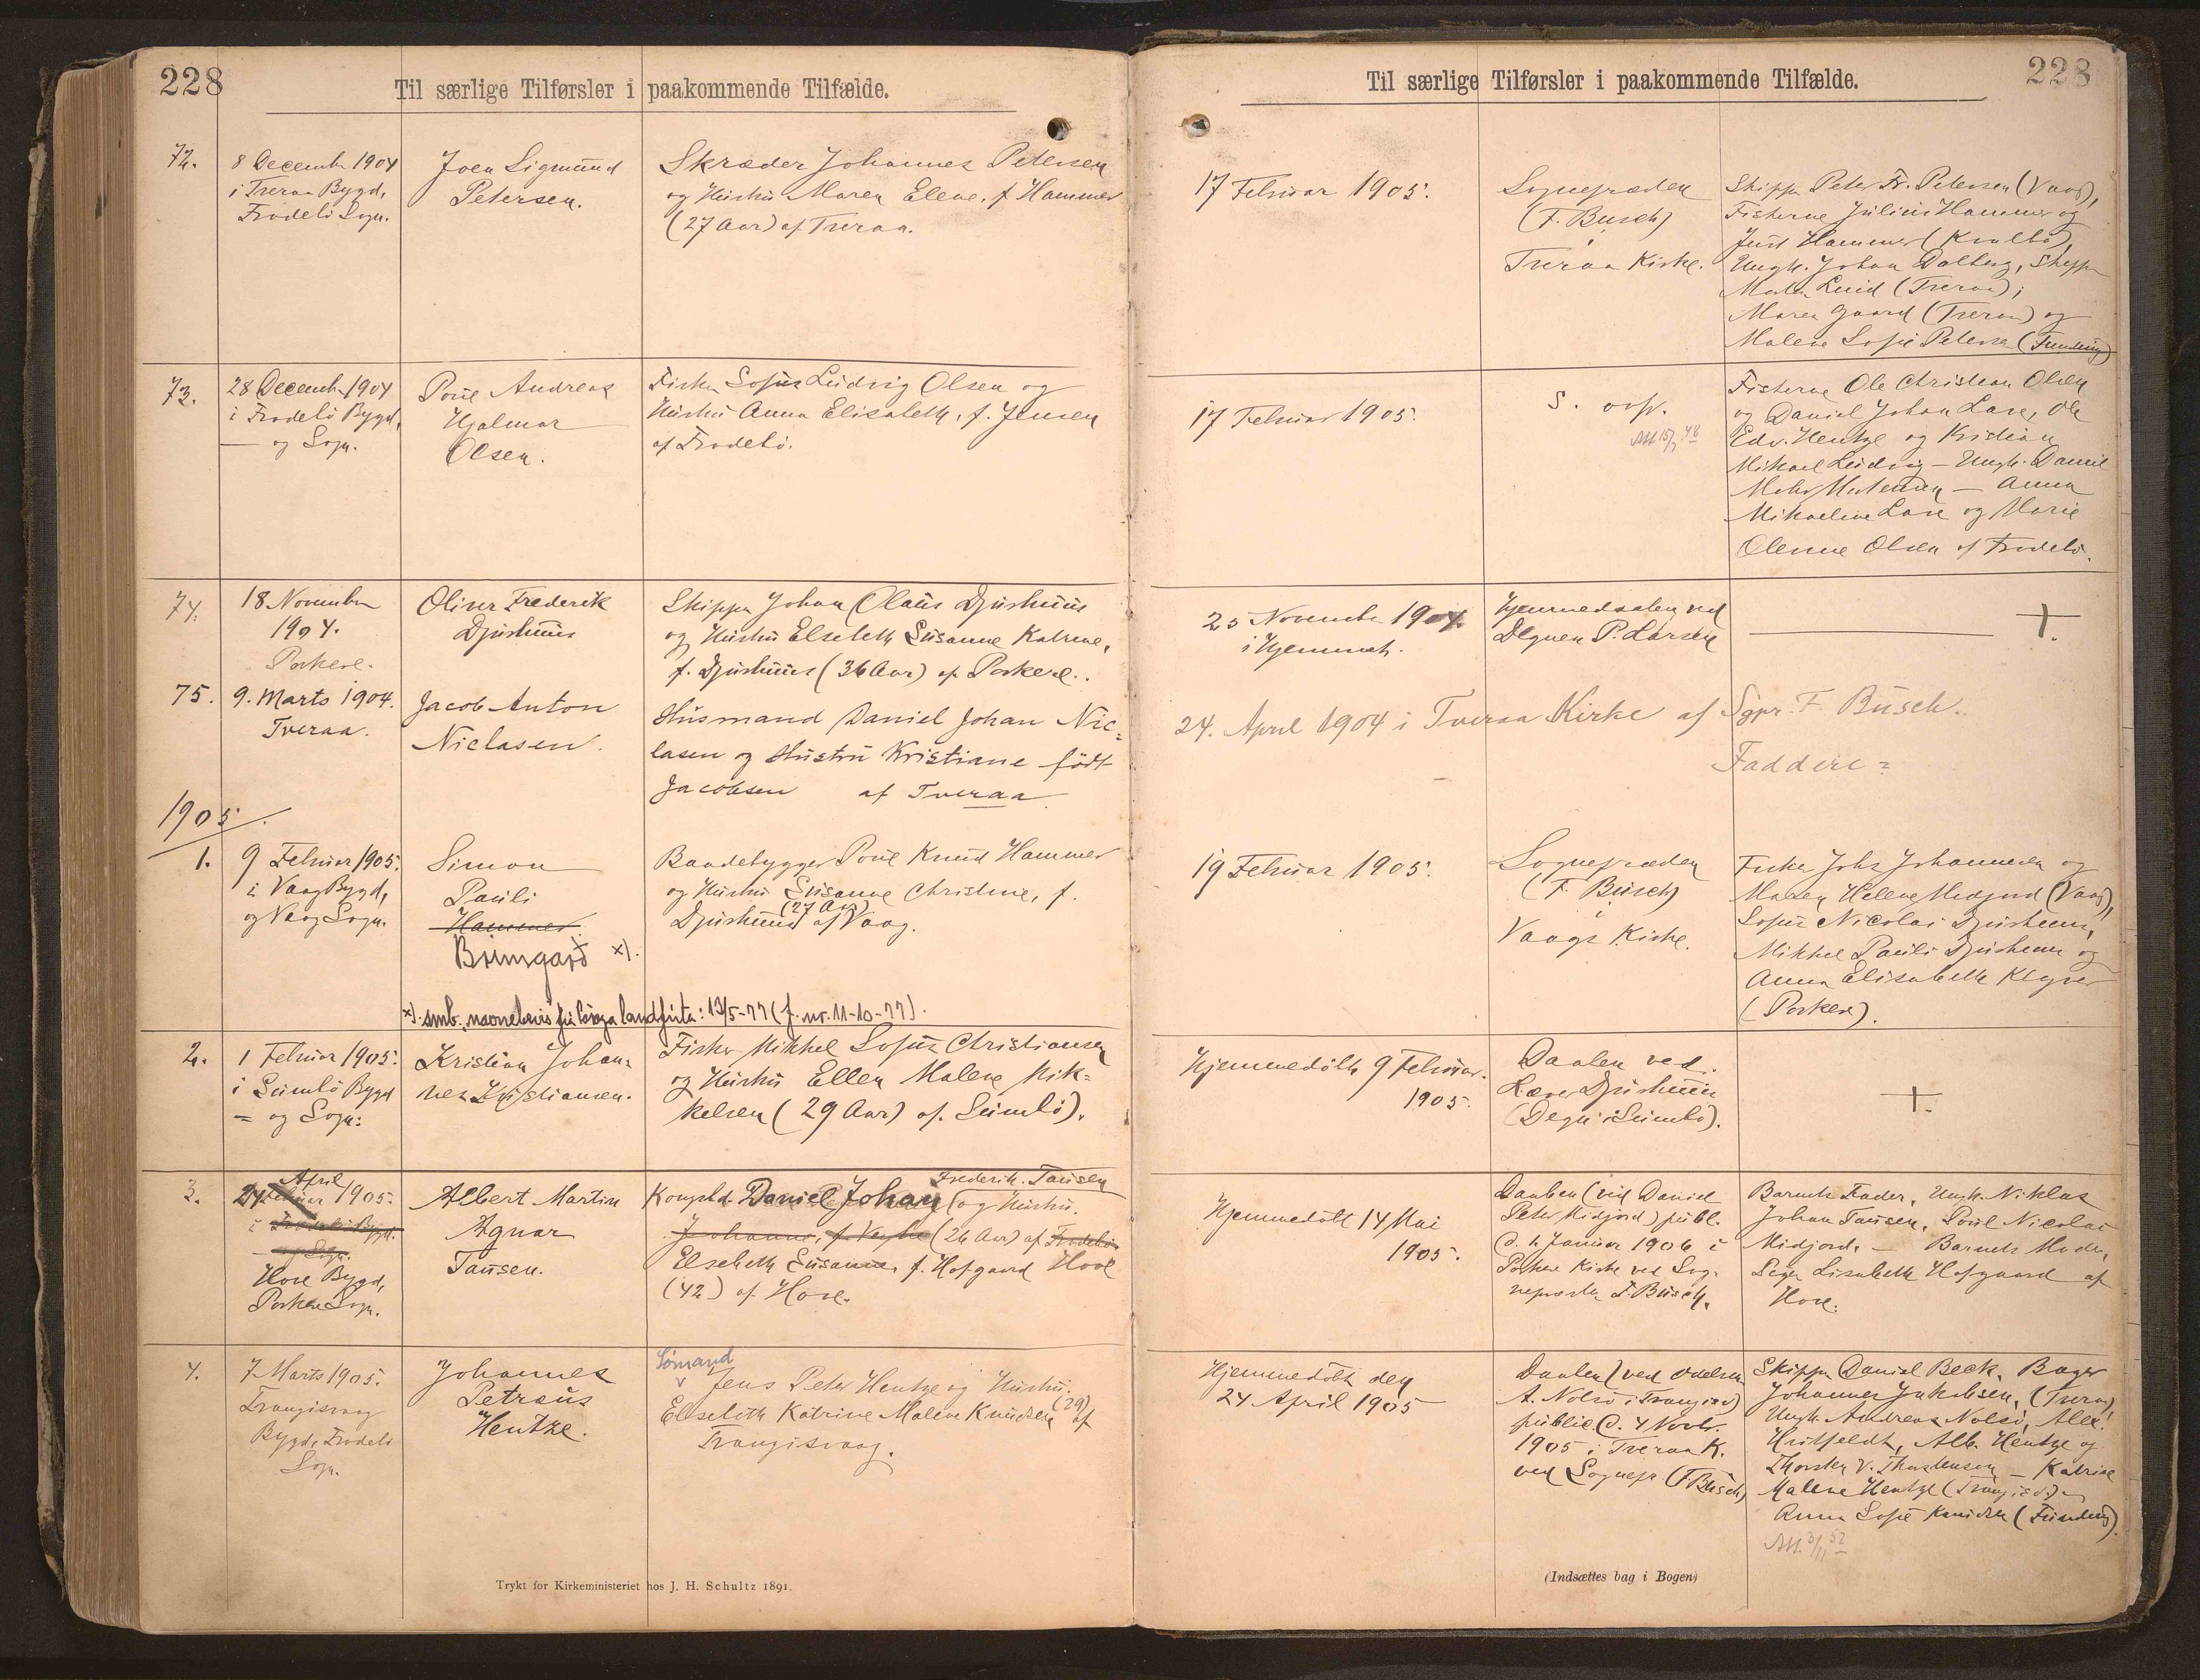 228
Til særlige Tilførsler i paakommende Tilfælde.
72.
8 December 1904
i Tveraa Bygd,
Frodebö Sogn.
Joen Sigmund
Petersen.
Skræder Johannes Petersen
og Hustru Maren Elene, f. Hammer
(27 Aar) af Tveraa.
73.
28 Decemb. 1904
i Frodebö Bygd,
— og Sogn.
Poul Andreas
Hjalmar
Olsen.
Fisker Sofus Ludvig Olsen og
Hustru Anna Elisabeth, f. Jensen
af Frodebö.
74.
18 November
1904.
Porkere.
Oliver Frederik
Djurhuus
Skipper Johan Olaus Djurhuus
og Hustru Elsebeth Susanne Katrine,
f. Djurhuus (36 Aar) af Porkere.
75.
9. Marts 1904.
Tveraa.
Jacob Anton
Niclasen.
Husmand Daniel Johan Nic=
lasen og Hustru Kristiane födt
Jacobsen af Tveraa
1905.
1.
9 Februar 1905.
i Vaag Bygd,
og Vaag Sogn.
Simon
Pauli
Hammer.
Brimgarð x).
Baadebygger Poul Knud Hammer
og Hustru Susanne Christine, f.
Djurhuus (27 Aar) af Vaag.
x). smb. navnebrævi frá Føroya landfúta: 13/5-77 (J. nr. 11-10-77).
2.
1 Februar 1905.
i Sumbö Bygd
= og Sogn:
Kristian Johan=
nes Kristiansen.
Fisker Mikkel Sofus Christiansen
og Hustru Ellen Malene Mik=
kelsen (29 Aar) af Sumbö).
3.
24 April 1905.
i Frodebö Bygd.
— og Sogn.
Hove Bygd,
Porkere Sogn.
Albert Martin
Agnar
Tausen.
Kongsbd. Daniel Johan Frederik Tausen
(og Hustru.
Johanne, f. (26 Aar) af Frodebö
Elsebeth Susanne, f. Hofgaard Hove
(42) af Hove.
4.
7 Marts 1905.
Trangisvaag
Bygd, Frodebö
Sogn.
Johannes
Petræus
Hentze.
Sømand
Jens Peter Hentze og Hustru
Elsebeth Katrine Malene Knudsen (29) af
Trangisvaag.
Trykt for Kirkeministeriet hos J. H. Schultz 1891.
228
Til særlige Tilførsler i paakommende Tilfælde.
17 Februar 1905.
Sognepræsten
(F. Busch)
i
Tveraa Kirke.
Skipper Peter Fr. Petersen (Vaag),
Fiskerne Julius Hammer og
Just Hammer (Kvalbö),
Ungk. Johan Dalberg, Skipper
Morten Lund (Tveraa);
Maren Gaard (Tveraa) og
Malene Sofie Petersen (Funding)
17 Februar 1905.
S. ovfr.
Att 15/7 48
Fiskerne Ole Christian Olsen
og Daniel Johan Lare, Ole
Edv. Hentze og Kristian
Mikael Ludvig — Ungk. Daniel
Mohr Mortensen — Anna
Mikaeline Lare og Marie
Olevine Olsen af Frodebö.
25 November 1904
i Hjemmet.
Hjemmedaaben ved
Degnen P. Larsen
+.
24. April 1904 i Tveraa Kirke af Sgpr. F. Busch.
Faddere =
19 Februar 1905.
Sognepræsten
(F. Busch)
i
Vaags Kirke.
Fisker Johs Johannesen og
Maren Helene Midjord (Vaag),
Sofus Nicolai Djurhuus,
Mikkel Pauli Djurhuus og
Anna Elisabeth Klyver
(Porkere).
Hjemmedöbt 9 Februar.
1905.
Daaben ved
Lærer Djurhuus
(Degn i Sumbö).
+.
Hjemmedöbt 14 Mai
1905.
Daaben (ved Daniel
Peter Midjord) publ.
d. 1 Januar 1906 i
Porkere Kirke ved Sog-
nepræsten F. Busch.
Barnets Fader, Ungk. Niklas
Johan Tausen, Poul Nicolai
Midjord. — Barnets Moder,
Pigen Lisabeth Hofgaard af
Hove.
Hjemmedöbt den
24 April 1905
Daaben (ved
A. Nolsö i Trangisv.)
public. d. 4 Novbr.
1905 i Tveraa K.
ved Sognepr. (F. Busch)
Skipper Daniel Beck, Bager
Johannes Jakobsen, (Tveraa),
Ungk. Andreas Nolsö, Alex.
Huitfeldt, Alb. Hentze og
Thorsten V. Thorstensen — Katrine
Malene Hentze (Trangisv.) og
Anna Sofie Knudsen (Funding).
Att. 3/11 52
(Indsættes bag i Bogen)